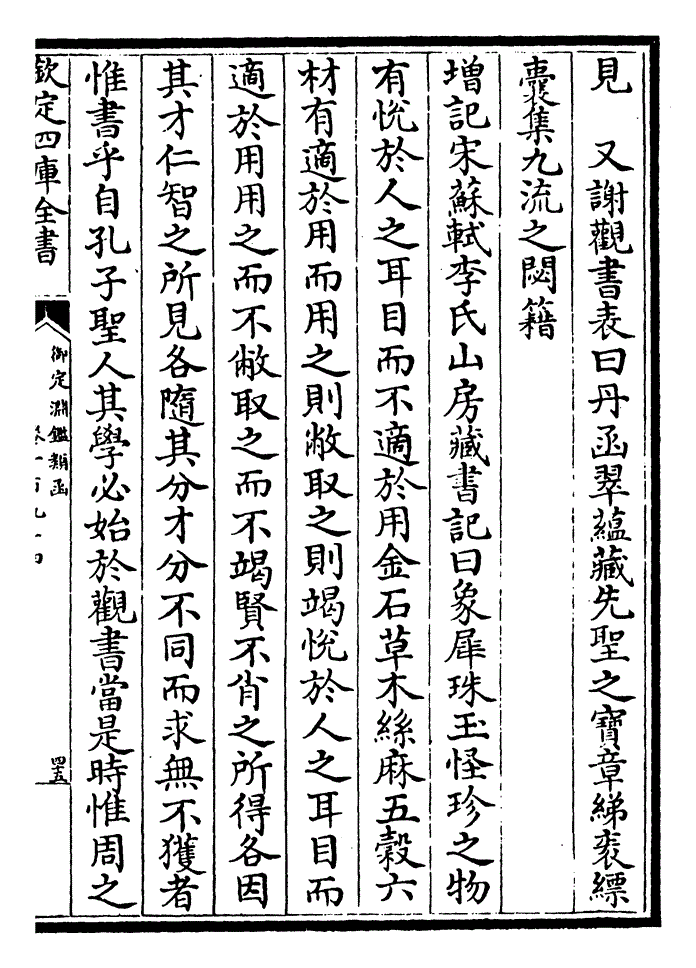 見　又謝觀書表曰丹函翠蘊藏先聖之寶章綈袠縹
囊集九流之閟籍
增記宋蘇軾李氏山房藏書記曰象犀珠玉怪珍之物
有悅於人之耳目而不適於用金石草木絲麻五榖六
材有適於用而用之則敝取之則竭悅於人之耳目而
適於用用之而不敝取之而不竭賢不肖之所得各因
其才仁智之所見各隨其分才分不同而求無不獲者
惟書乎自孔子聖人其學必始於觀書當是時惟周之
欽定四庫全書
御定淵鑑類函
四十五